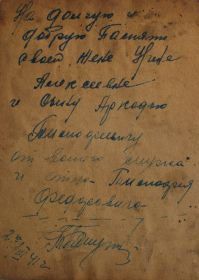 На долгую и
добрую Память
своей Жене Нине
Алексеевне
и сыну Аркадию
Тимофеевичу
от вашего мужа
и отца Тимофея
Федоровича